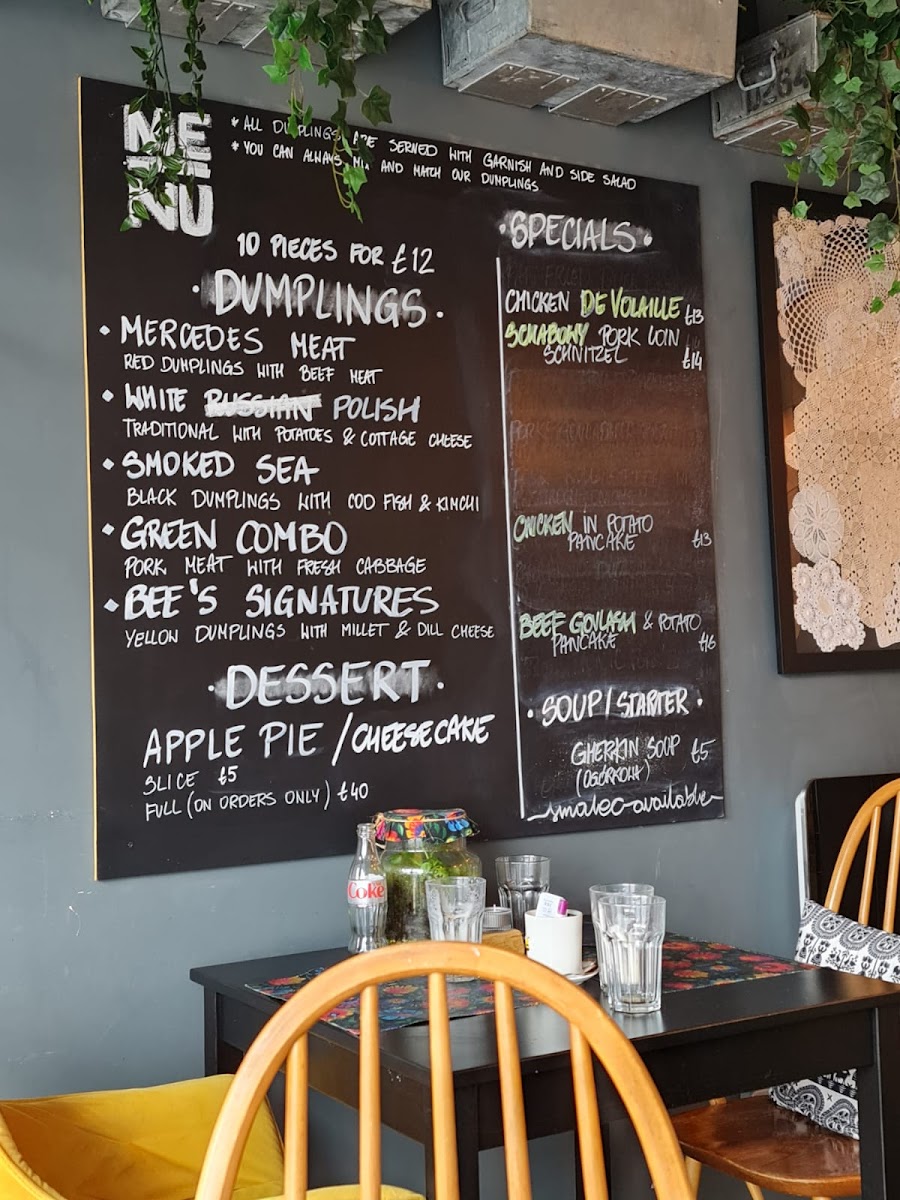 ME
NU
* ALL DUMPLINGS ARE SERVED WITH GARNISH AND SIDE SALAD
* YOU CAN ALWAYS MIX AND MATCH OUR DUMPLINGS
10 PIECES FOR £12
• DUMPLINGS •
• MERCEDES MEAT
RED DUMPLINGS WITH BEEF MEAT
• WHITE RUSSIAN POLISH
TRADITIONAL WITH POTATOES & COTTAGE CHEESE
• SMOKED SEA
BLACK DUMPLINGS WITH COD FISH & KIMCHI
• GREEN COMBO
PORK MEAT WITH FRESH CABBAGE
• BEE'S SIGNATURES
YELLOW DUMPLINGS WITH MILLET & DILL CHEESE
• DESSERT •
APPLE PIE / CHEESECAKE
SLICE £5
FULL (ON ORDERS ONLY) £40
• SPECIALS •
CHICKEN DE VOLAILLE £13
SCHABOWY PORK LOIN
SCHNITZEL £14
CHICKEN IN POTATO
PANCAKE £13
BEEF GOULASH & POTATO
PANCAKE £16
• SOUP / STARTER •
GHERKIN SOUP £5
(OGÓRKOWA)
Coke